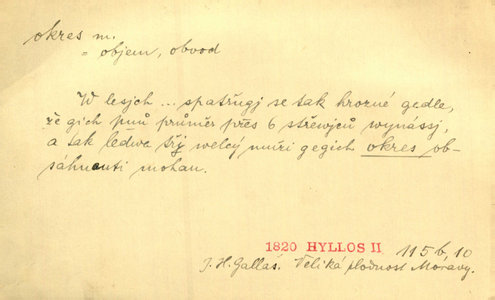 okres m.
= objem, obvod
W lesých ... spatřugj se tak hrozné gedle,
že gich pnů průměr přes 6 střewjců wynássj,
a tak ledwa třj welcý muži gegich okres ob-
sáhnauti mohau.
1820 HYLLOS II 115b, 10
J. H. Gallaš. Veliká plodnost Moravy.